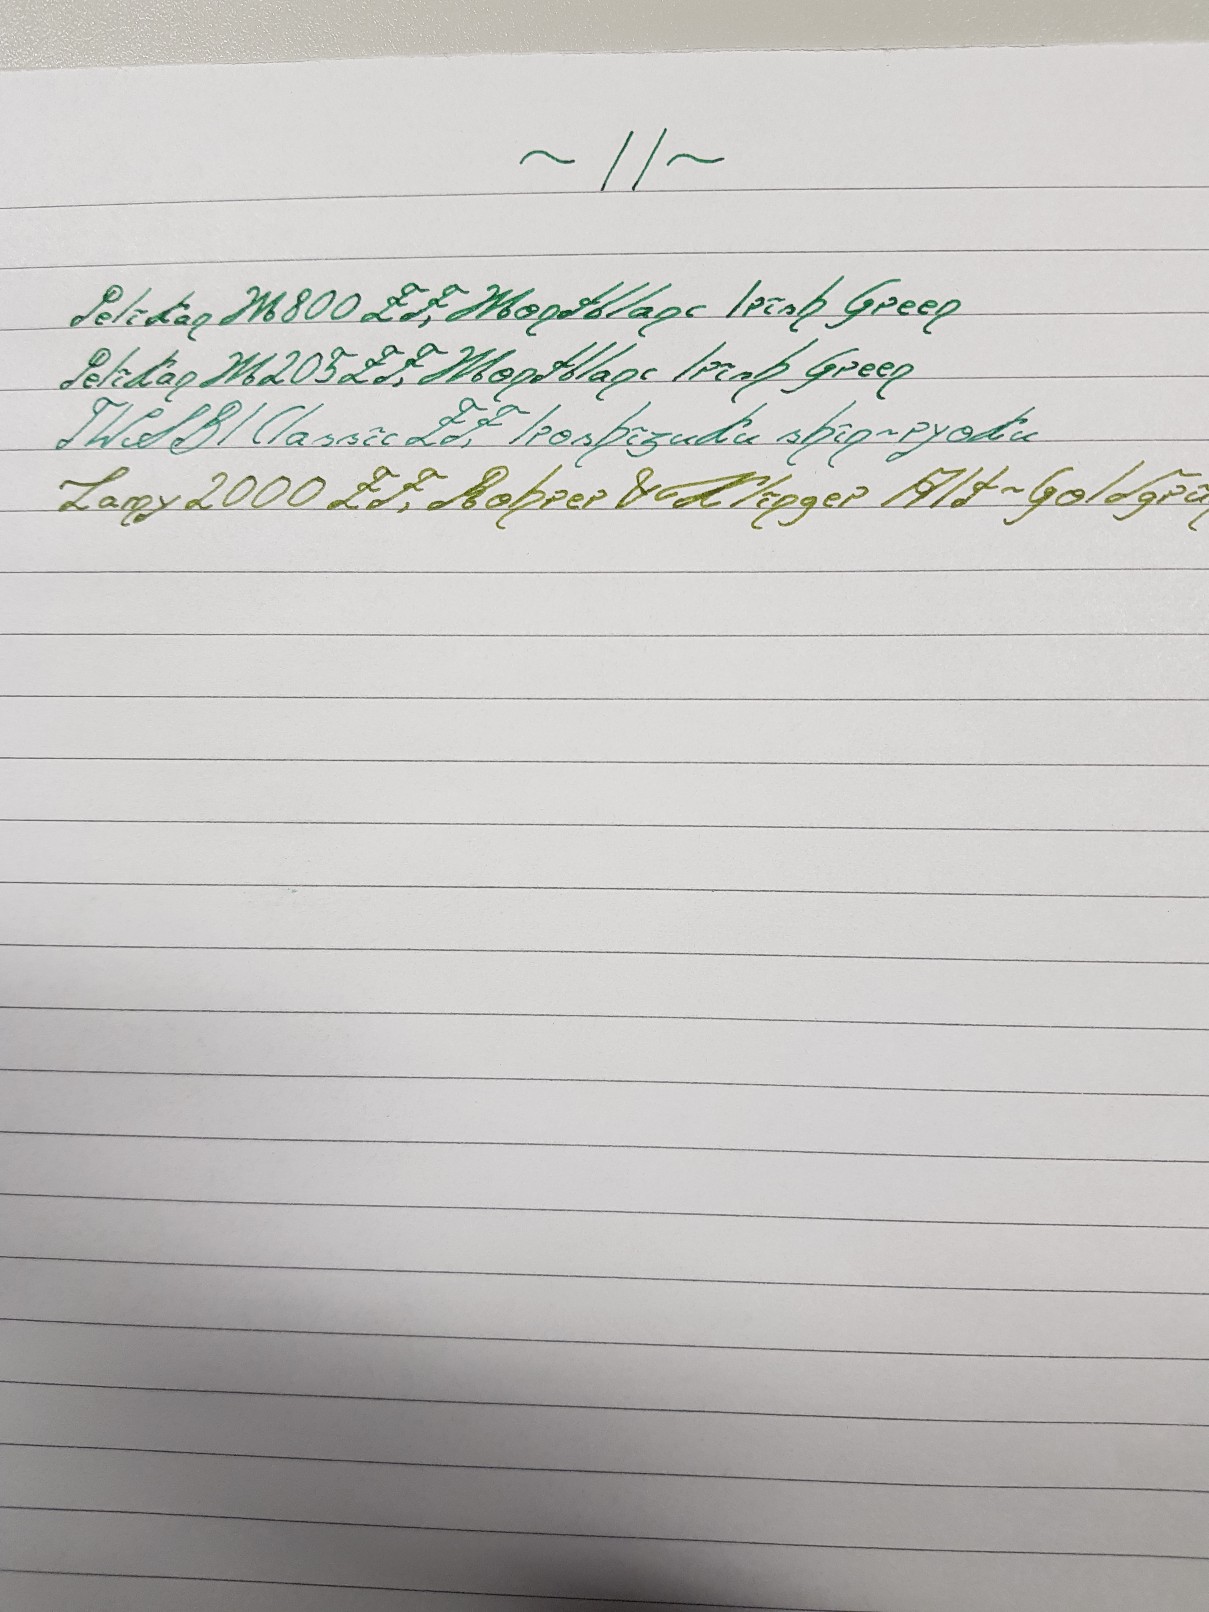 ~ 11 ~
Pelikan M800 EF, Montblanc Irish Green
Pelikan M205 EF, Montblanc Irish Green
TWSBI Classic EF, Iroshizuku shin-ryoku
Lamy 2000 EF, Rohrer & Klinger Alt-Goldgrün